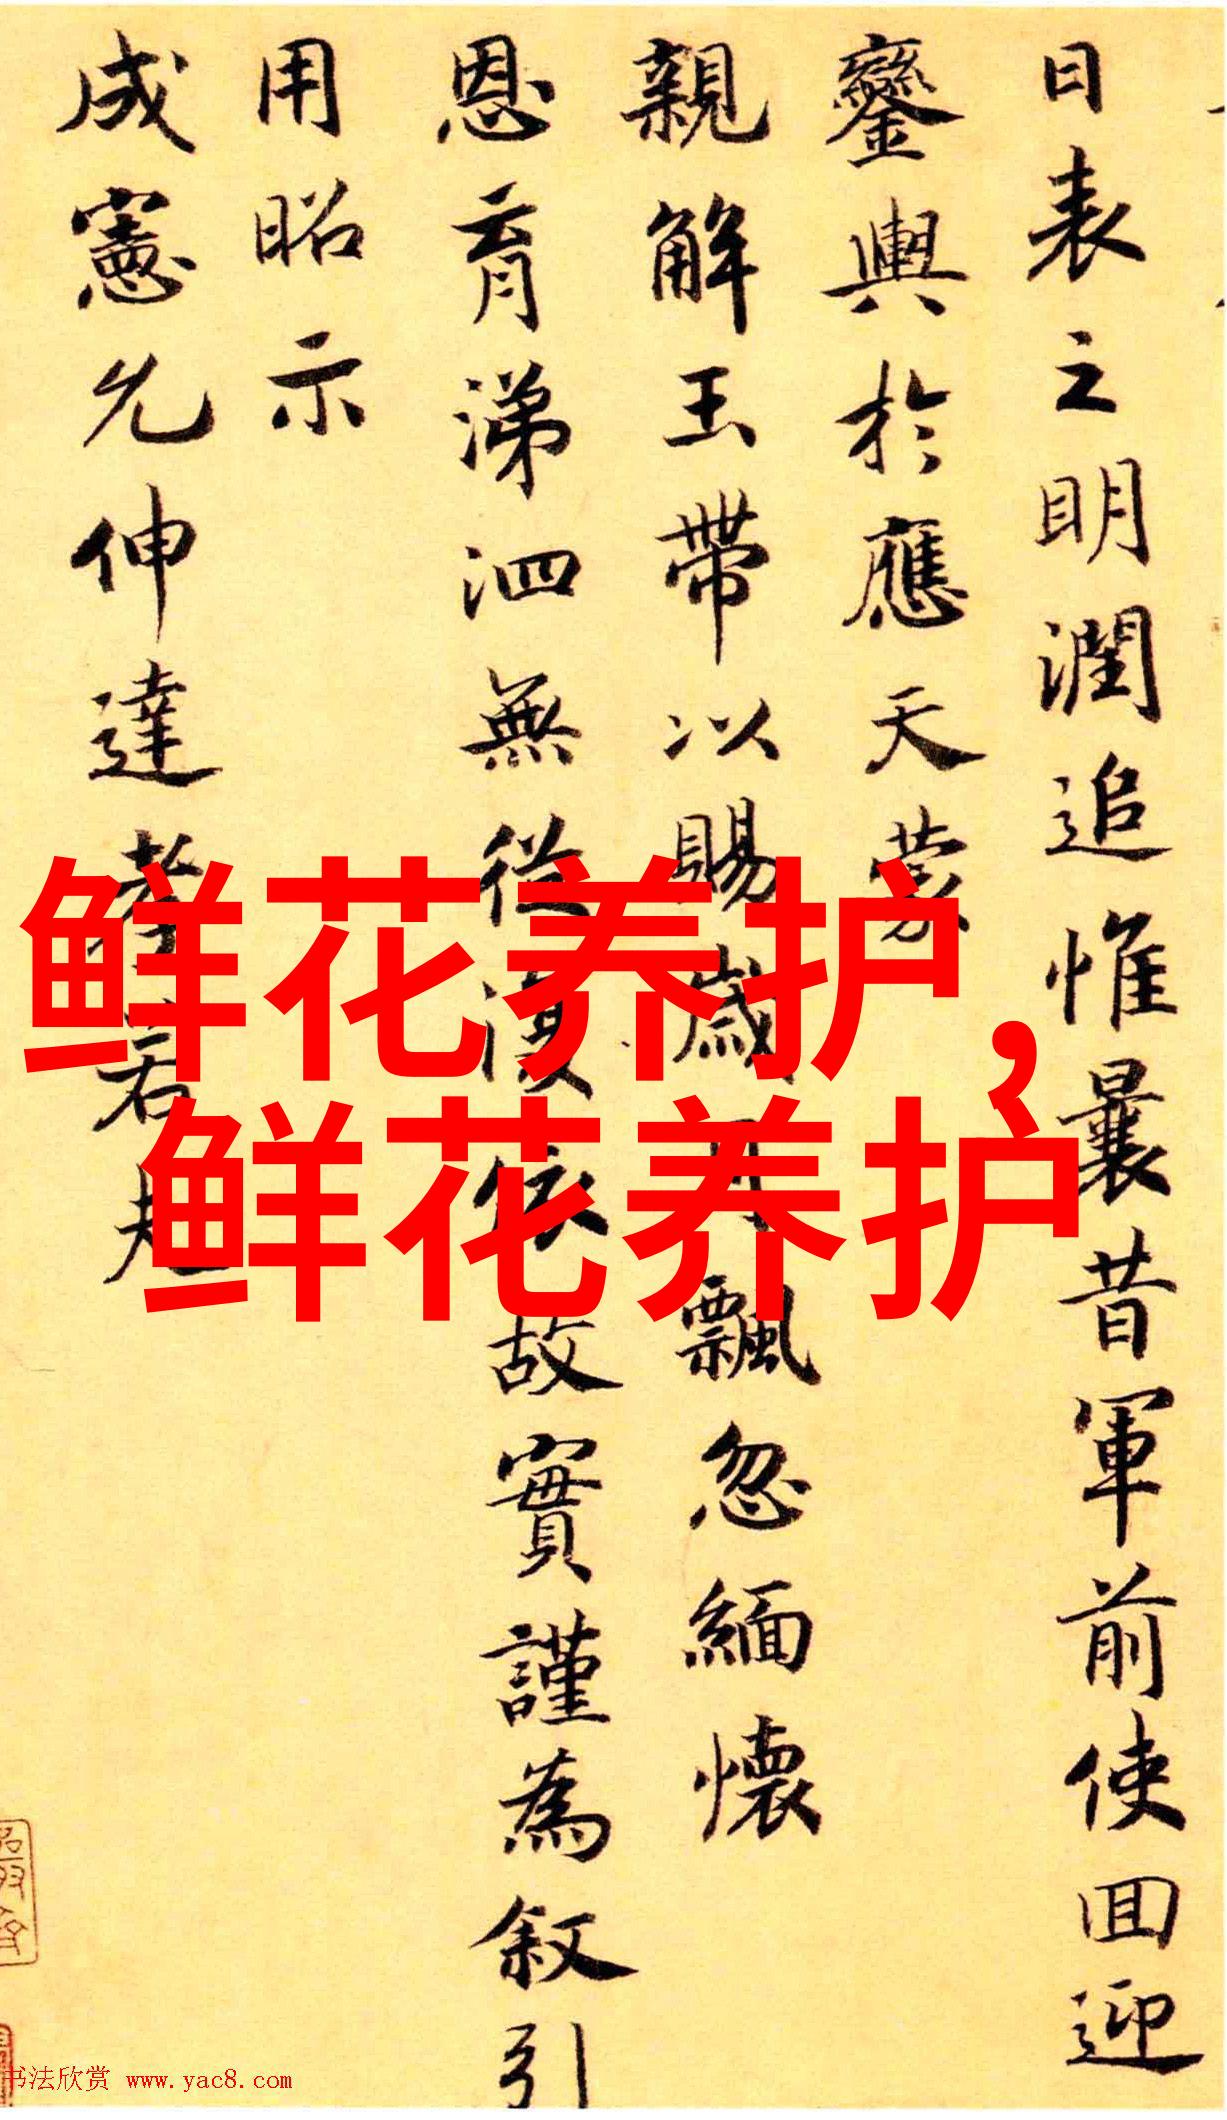 日表之明潤追惟曩昔軍前使回迎
鑾輿於應天蒙
親解玉帶以賜歲月飄忽緬懷
恩育涕泗無從復依故實謹為敘引
用昭示
成憲允伸達孝若夫
鲜花养护，
鲜花养护
书法欣赏 www.yac8.com